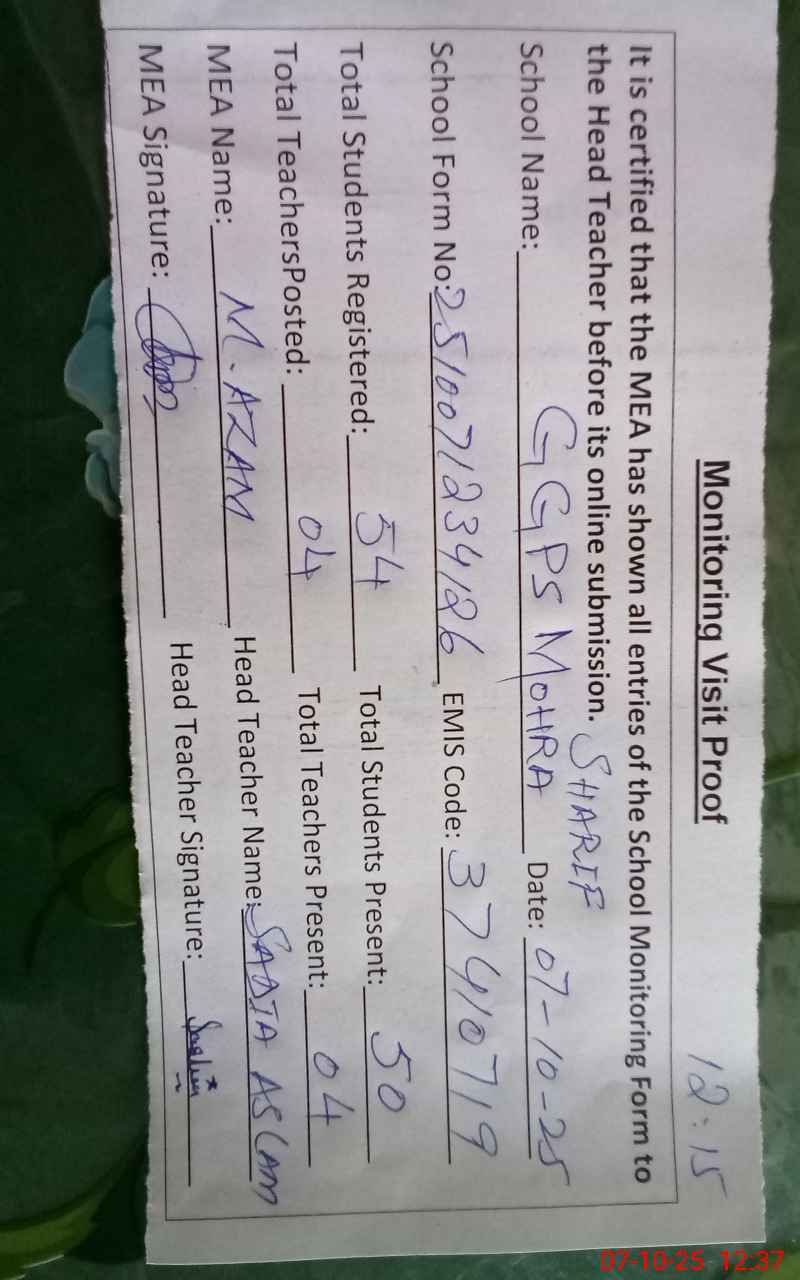 12:15
Monitoring Visit Proof
It is certified that the MEA has shown all entries of the School Monitoring Form to
the Head Teacher before its online submission.
SHARIF
School Name: GGPS MOHRA Date: 07-10-25
School Form No: 2510071234126 EMIS Code: 37410719
Total Students Registered: 54 Total Students Present: 50
Total TeachersPosted: 04 Total Teachers Present: 04
MEA Name: M. AZAM Head Teacher Name: SADIA ASLAM
MEA Signature: Head Teacher Signature:
07-10-25 12:37